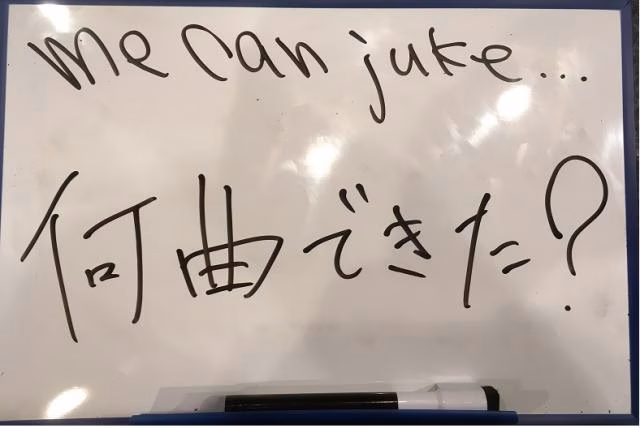 me can juke...
何曲できた?